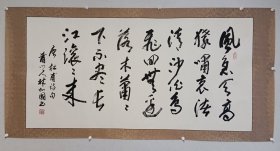 風急天高
猿嘯哀渚
清沙白鳥
飛回無邊
落木蕭蕭
下不盡長
江滾滾來
唐杜甫詩句